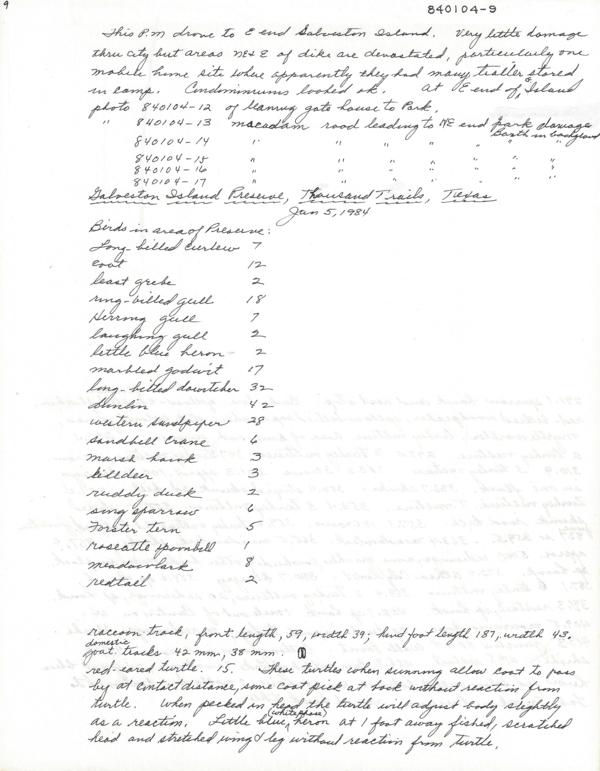 9
840104-9
This P.M drove to E end Galveston Island. Very little damage
thru city but areas NE & E of dike are devastated, particularly one
mobile home site where apparently they had many trailer stored
in camp. Condominiums looked ok. At E end of E. Island
photo 840104-12 of gate house to Park.
" 840104-13 macadam road leading to NE end park damage
Barth in background
840104-14 " " " " " "
840104-15 " " " " " " "
840104-16 " " " " " " "
840104-17 " " " " " " "
Galveston Island Preserve, Thousand Trails, Texas
Jan 5, 1984
Birds in area of Preserve:
Long-billed curlew 7
coot 12
least grebe 2
ring-billed gull 18
Herring gull 7
laughing gull 2
little blue heron 2
marbled godwit 17
long-billed dowitcher 32
dunlin 42
western sandpiper 28
sandhill crane 6
marsh hawk 3
killdeer 3
ruddy duck 2
song sparrow 6
Forster tern 5
roseatte spoonbell 1
meadowlark 8
redtail 2
raccoon track, front length, 59, width 39; hind foot length 187, width 43.
domestic
goat tracks 42 mm, 38 mm.
red-eared turtle. 15. These turtles when sunning allow coot to pass
by at contact distance, some coot pick at back without reaction from
turtle. When pecked in head the turtle will adjust body slightly
as a reaction. Little blue (white phase) heron at 1 foot away fished, scratched
head and stretched wing & leg without reaction from turtle.